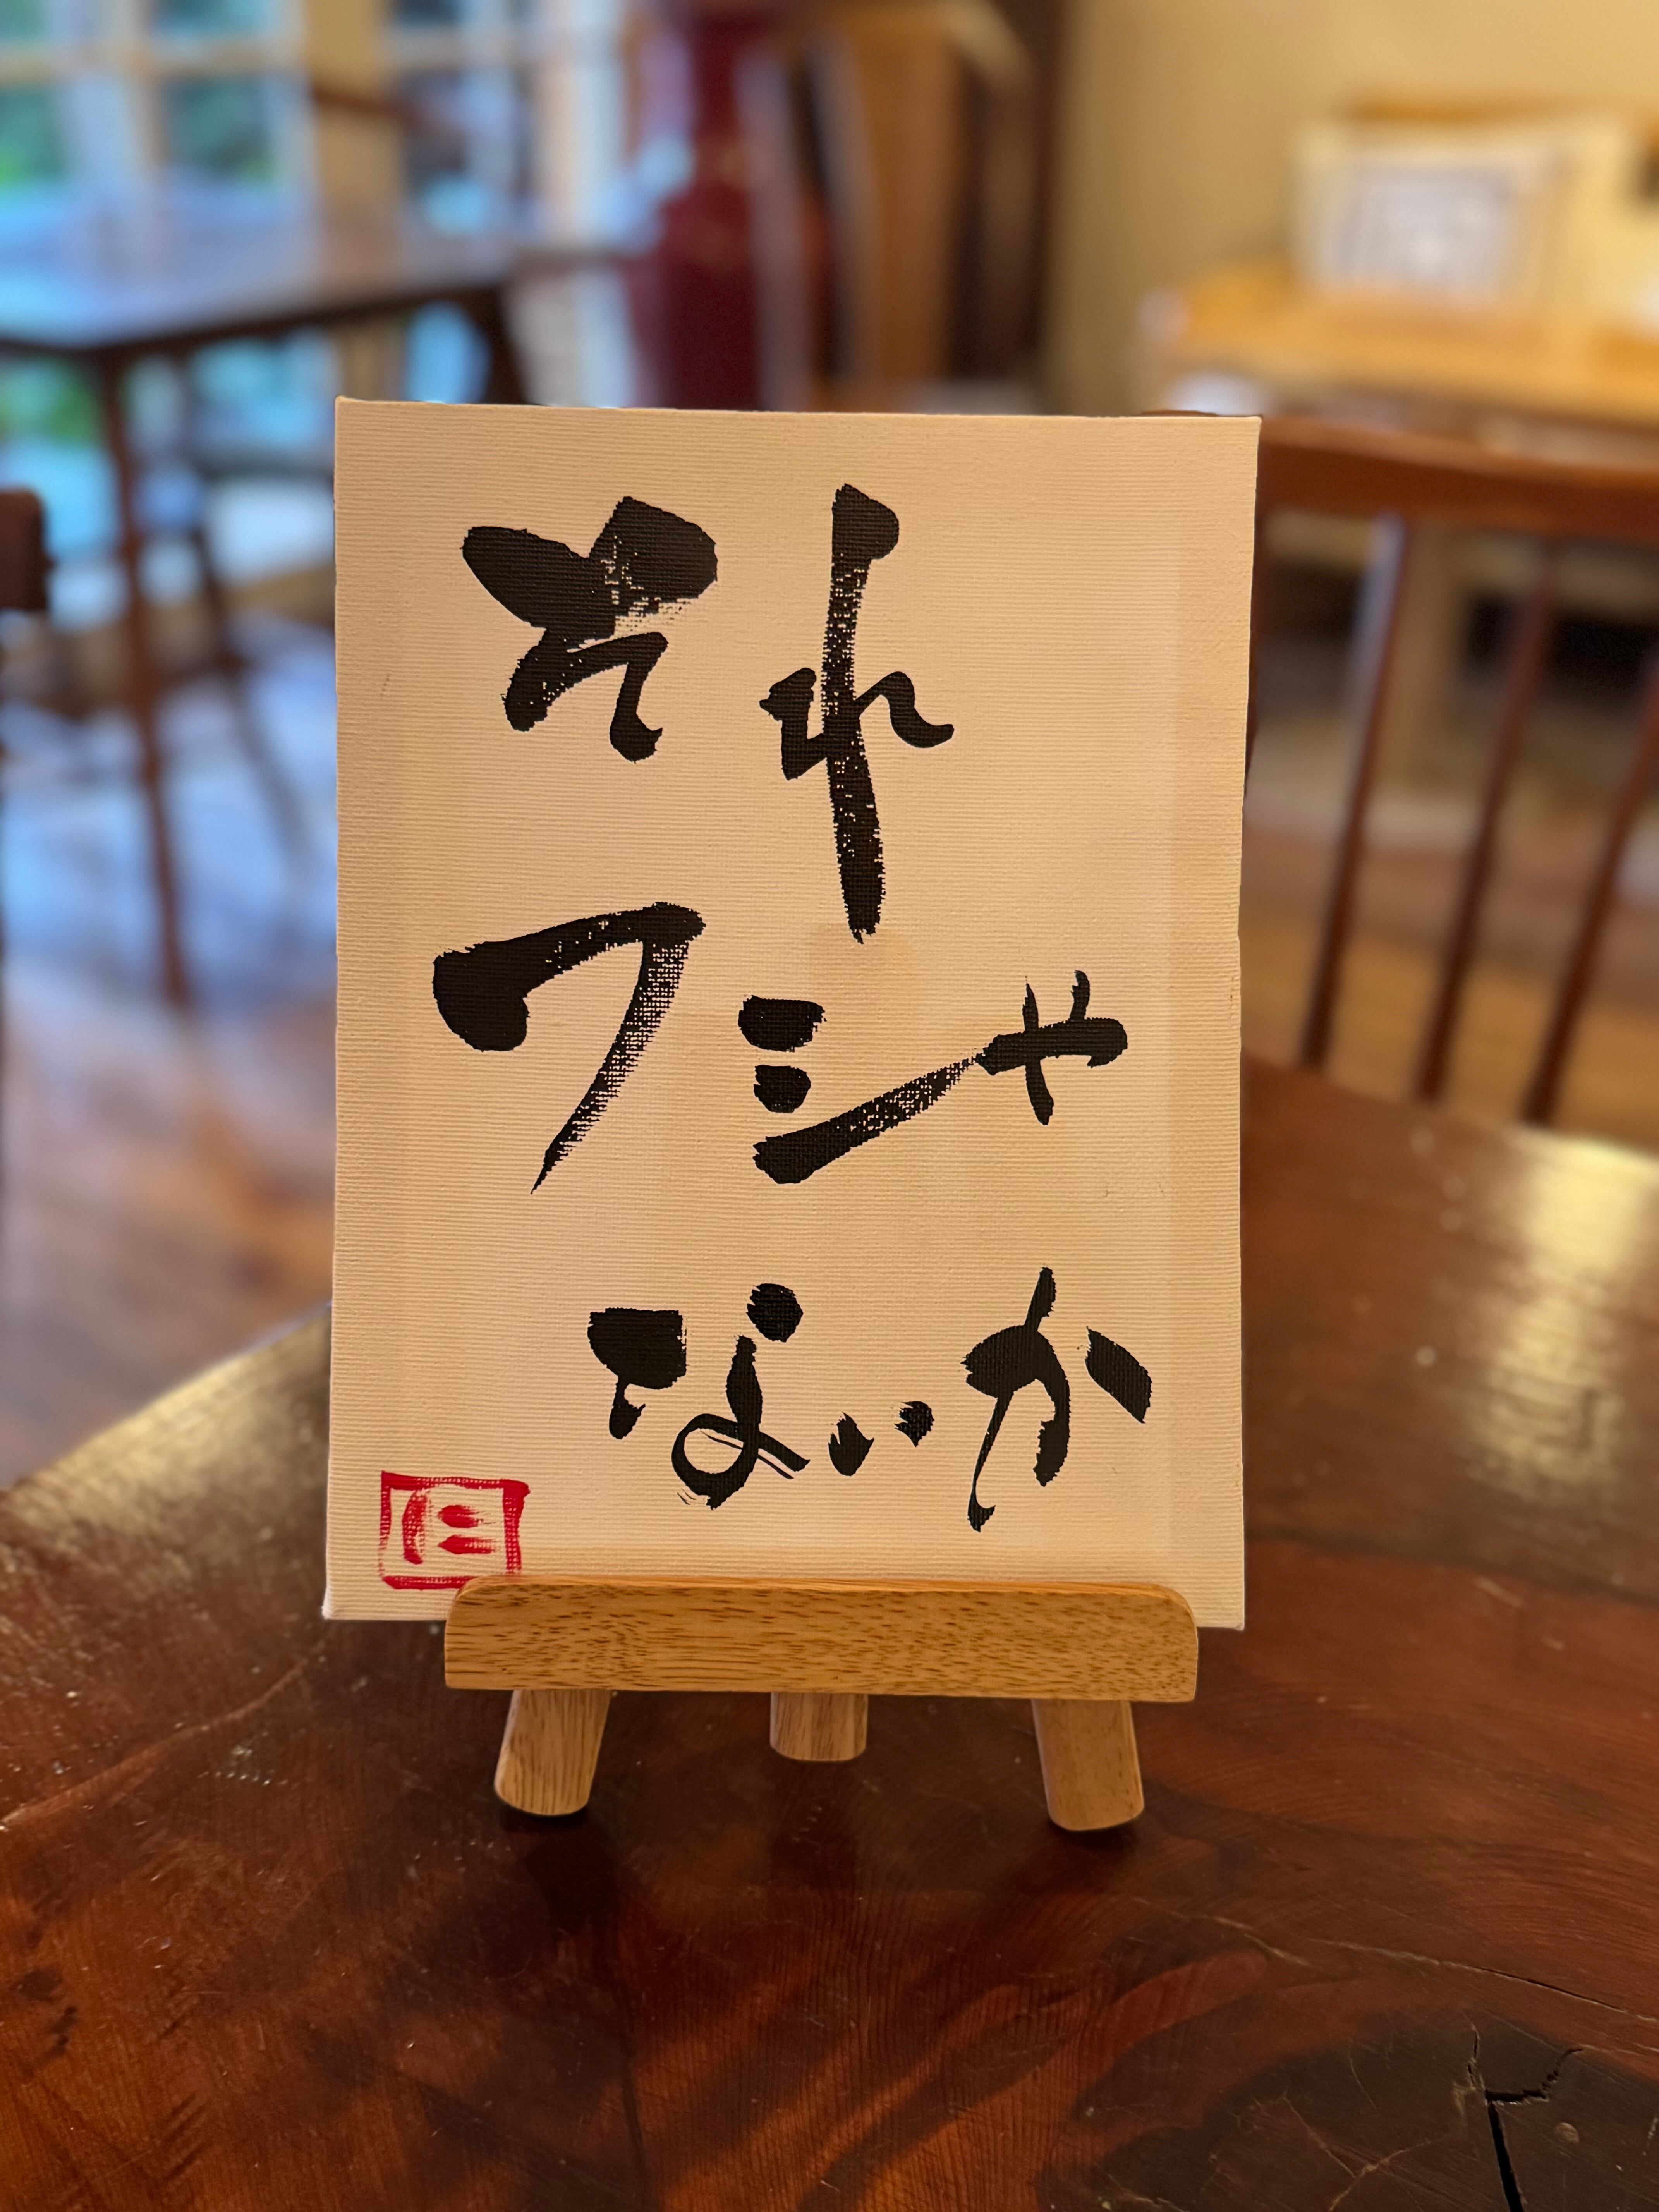 それ
ワシや
ないか
仁